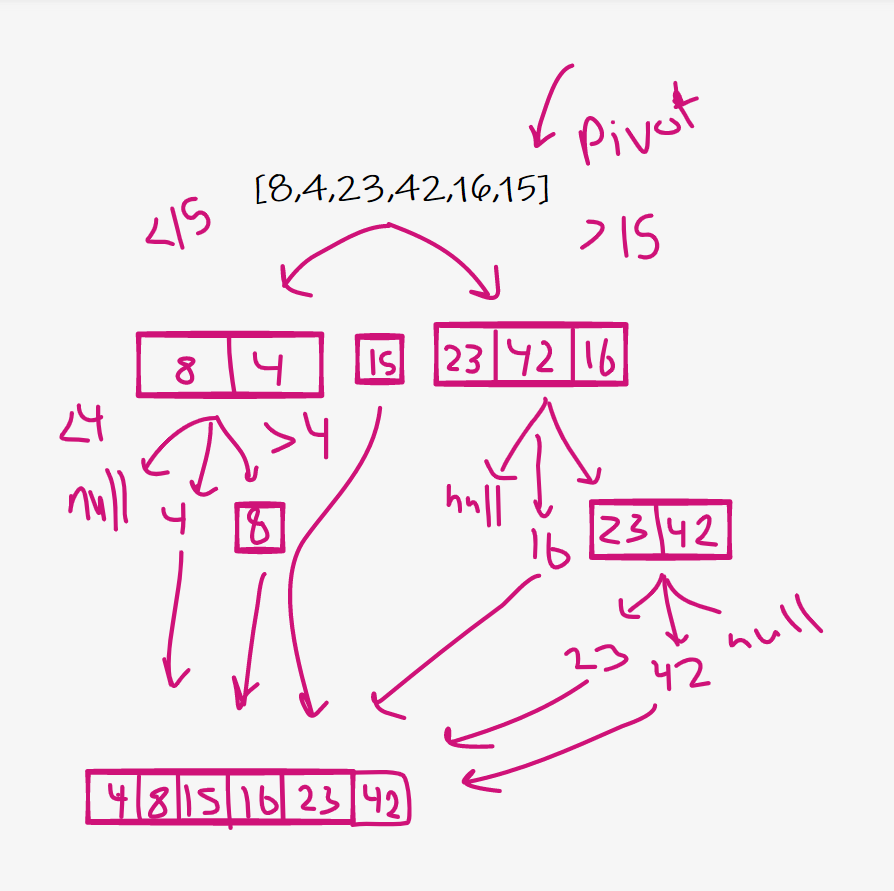 pivot
[8,4,23,42,16,15]
<15
>15
8 4
15
23 42 16
<4
>4
null
4
8
null
16
23 42
23
42
null
4 8 15 16 23 42